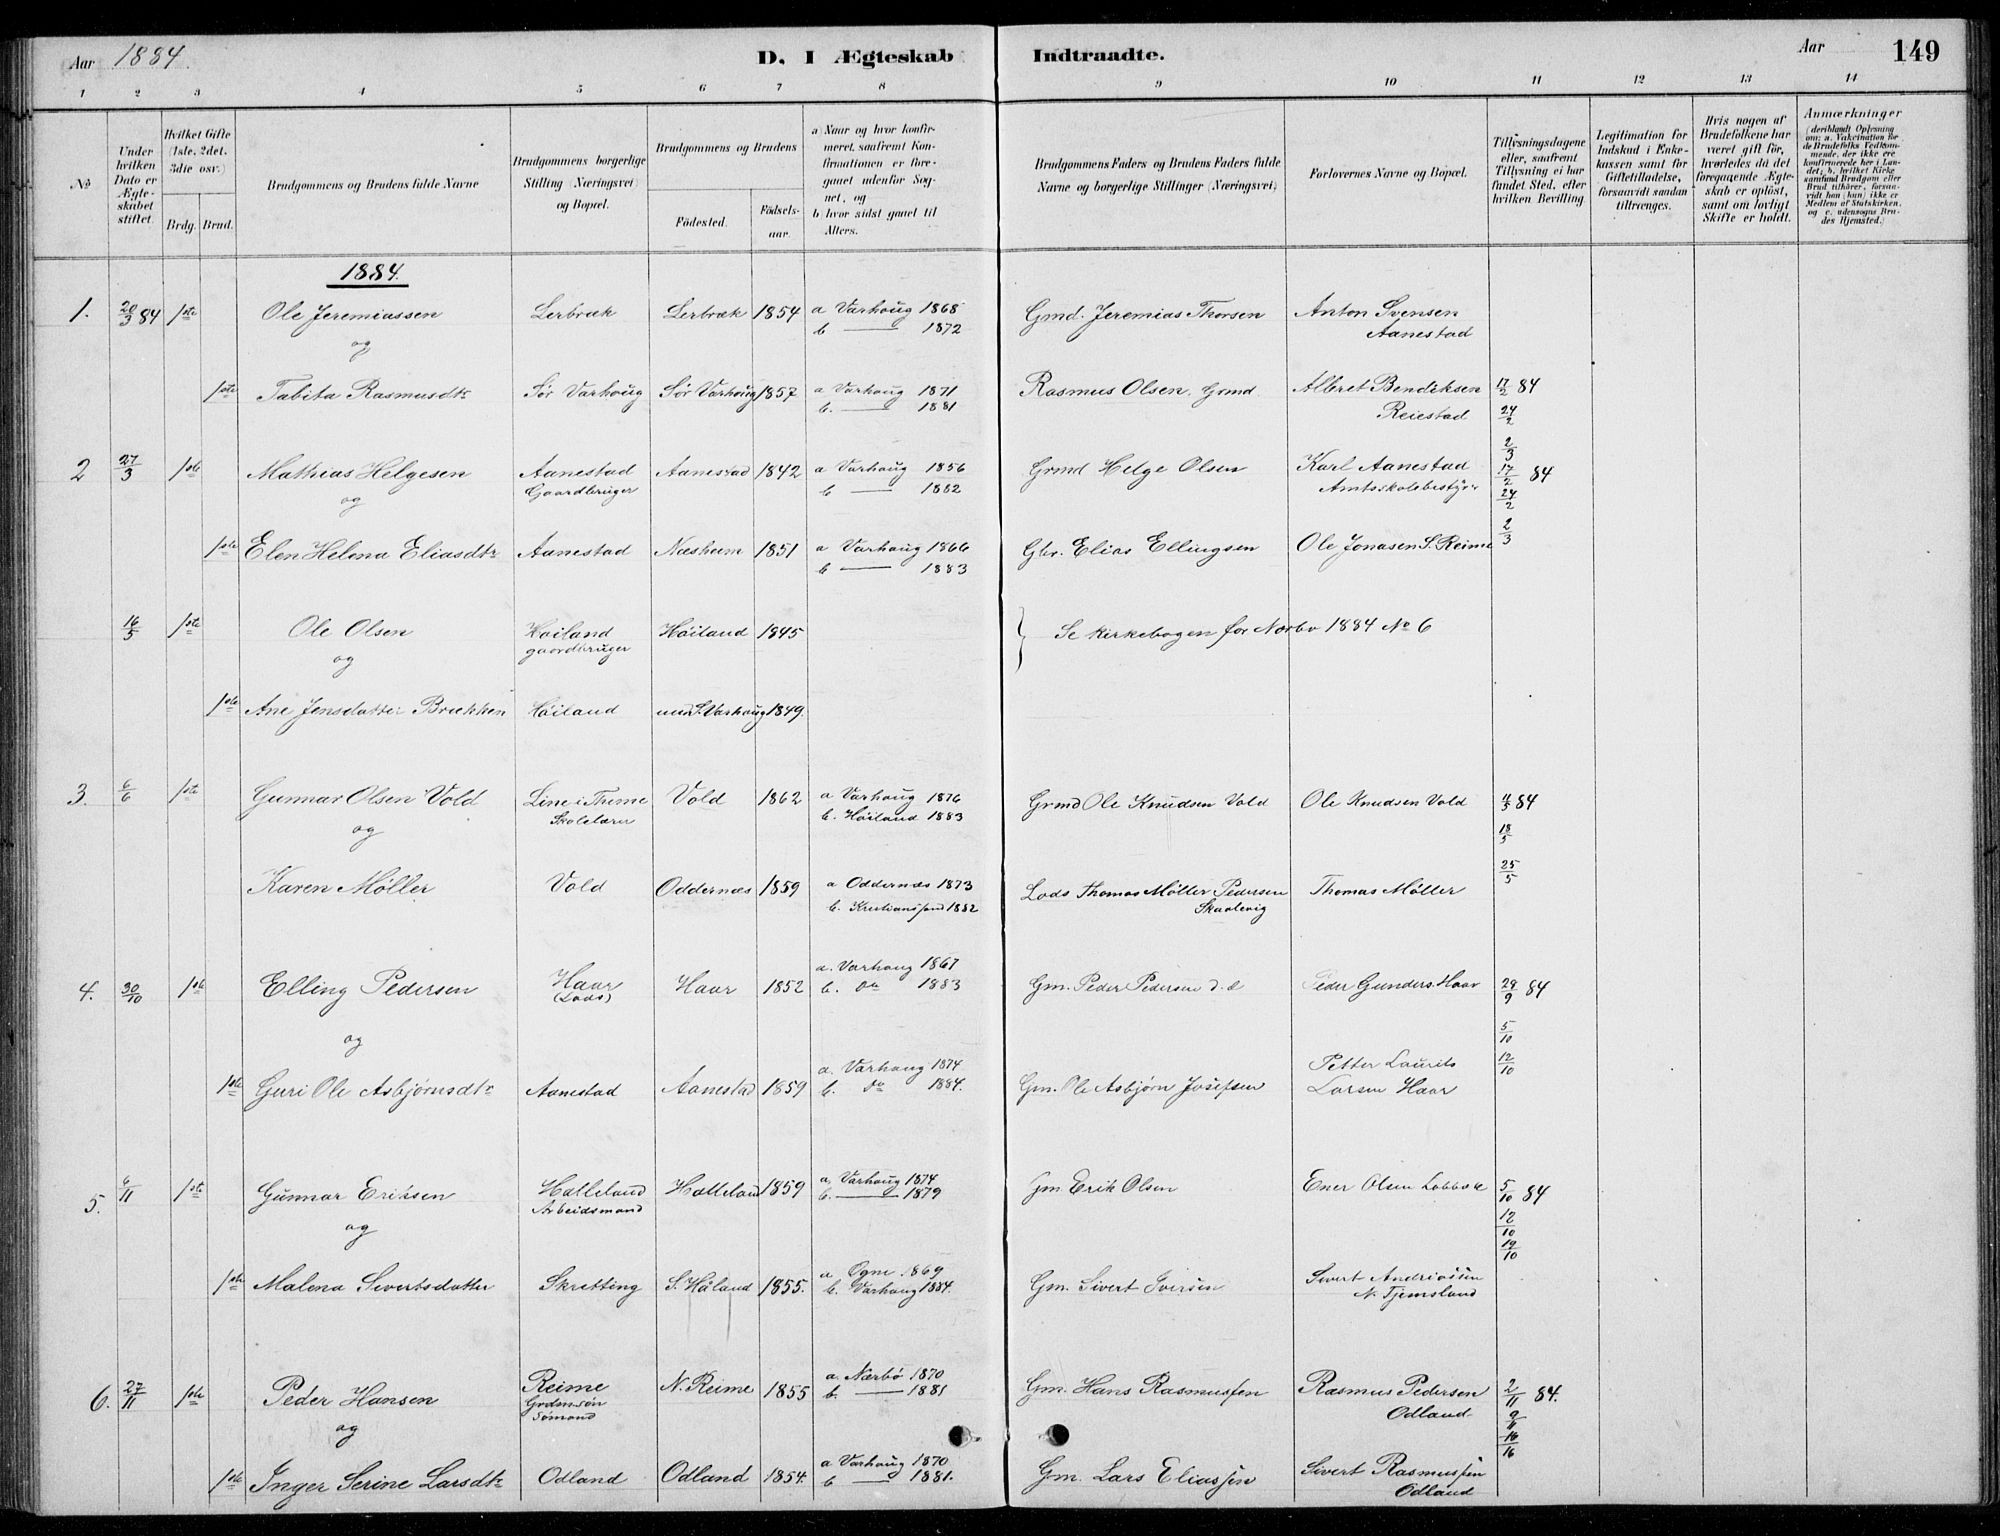 Aar 1884.
D. I Ægteskab Indtraadte.
Aar
149
1 2 3 4 5 6 7 8 9 10 11 12 13 14
No
Under hvilken Dato er Ægteskabet stiftet.
Hvilket Gifte (1ste, 2det, 3die osv.)
Brdg. Brud.
Brudgommens og Brudens fulde Navne
Brudgommens borgerlige Stilling (Næringsvei) og Bopæl.
Brudgommens og Brudens
Födested.
Födsels-aar.
a) Naar og hvor konfirmeret, saafremt Konfirmationen er foregaaet udenfor Sognet, og
b) hvor sidst gaaet til Alters.
Brudgommens Faders og Brudens Faders fulde Navne og borgerlige Stillinger (Næringsvei)
Forlovernes Navne og Bopæl.
Tillysningsdagene eller, saafremt Tillysning ei har fundet Sted, efter hvilken Bevilling.
Legitimation for Indskud i Enkekassen samt for Giftetilladelse, forsaavidt saadan tiltrænges.
Hvis nogen af Brudefolkene har været gift för, hvorledes da det foregaaende Ægteskab er oplöst, samt om lovligt Skifte er holdt.
Anmærkninger
(deriblandt Oplysning om: a. Vakcination for de Brudefolks Vedkommende, der ikke ere konfirmerede her i Landet; b. hvilket Kirkesamfund Brudgom eller Brud tilhörer, forsaavidt han (hun) ikke er Medlem af Statskirken, og c. udensogns Brudes Hjemsted.)
1884.
1. 20/3 84 1ste Ole Jeremiassen Lerbræk Lerbræk 1854 a Varhoug 1868 Gmd. Jeremias Thorsen Anton Svensen
b — 1872 Aanestad
og
1ste Tabita Rasmusdtr Sör Varhoug Sör Varhoug 1857 a Varhoug 1871 Rasmus Olsen, Grmd. Albret Bendiksen 17/2 84
b. — 1881 Reiestad 24/2
2/3
2 27/3 1ste Mathias Helgesen Aanestad Aanestad 1842 a Varhoug 1856 Grmd Helge Olsen Karl Aanestad 17/2 84
og Gaardbruger b — 1882 Amtsskolebestyr 24/2
1ste Elen Helena Eliasdtr Aanestad Næsheim 1851 a Varhoug 1866 Gbr. Elias Ellingsen Ole Jonasen S. Reime 2/3
b — 1883
16/5 1ste Ole Olsen Höiland Höiland 1845 Se Kirkebogen for Nærbö 1884 No 6
og gaardbruger
1ste Ane Jensdatter Brækken Höiland S. Varhoug 1849.
3. 6/6 1ste Gunnar Olsen Vold Line i Thime Vold 1862 a Varhoug 1876 Grmd Ole Knudsen Vold Ole Knudsen Vold 84
og Skolelærer b. Höiland 1883 18/5
Karen Møller Vold Oddernæs 1859 a Oddernæs 1873 Lods Thomas Møller Pedersen Thomas Møller 25/5
b. Kristianssand 1882 Skaalevig
4. 30/10 1ste Elling Pedersen Haar Haar 1852 a. Varhaug 1867 Gm. Peder Pedersen d. æ Peder Gunders. Haar 29/9 84
(Lods) b. do 1883
og 5/10
1ste Guri Ole Asbjørnsdtr Aanestad Aanestad 1859 a. Varhaug 1874 Gm. Ole Asbjørn Josefsen Petter Laurits 12/10
b. do 1884. Larsen Haar
5. 6/11 1ste Gunnar Eriksen Hatteland Hatteland 1859 a, Varhoug 1874 Gm Erik Olsen Ener Olsen 5/10 84
Arbeidsmand b. — 1879 12/10
og 19/10
1ste Malena Sivertsdatter Skretting S. Höland 1855. a Ogne 1869 Gm. Sivert Iversen Sivert Andriassen
b. Varhaug 1884. N. Tjemsland
6. 27/11 1ste Peder Hansen Reime N. Reime 1855 a. Nærbö 1870 Gm. Hans Rasmussen Rasmus Pedersen 2/11 84.
Grdmsön b. — 1881 Odland 9/11
og Sömand 16/16
1ste Inger Serine Larsdtr Odland Odland 1854. a Varhoug 1870 Gm. Lars Eliassen Sivert Rasmussen
b — 1881. Odland